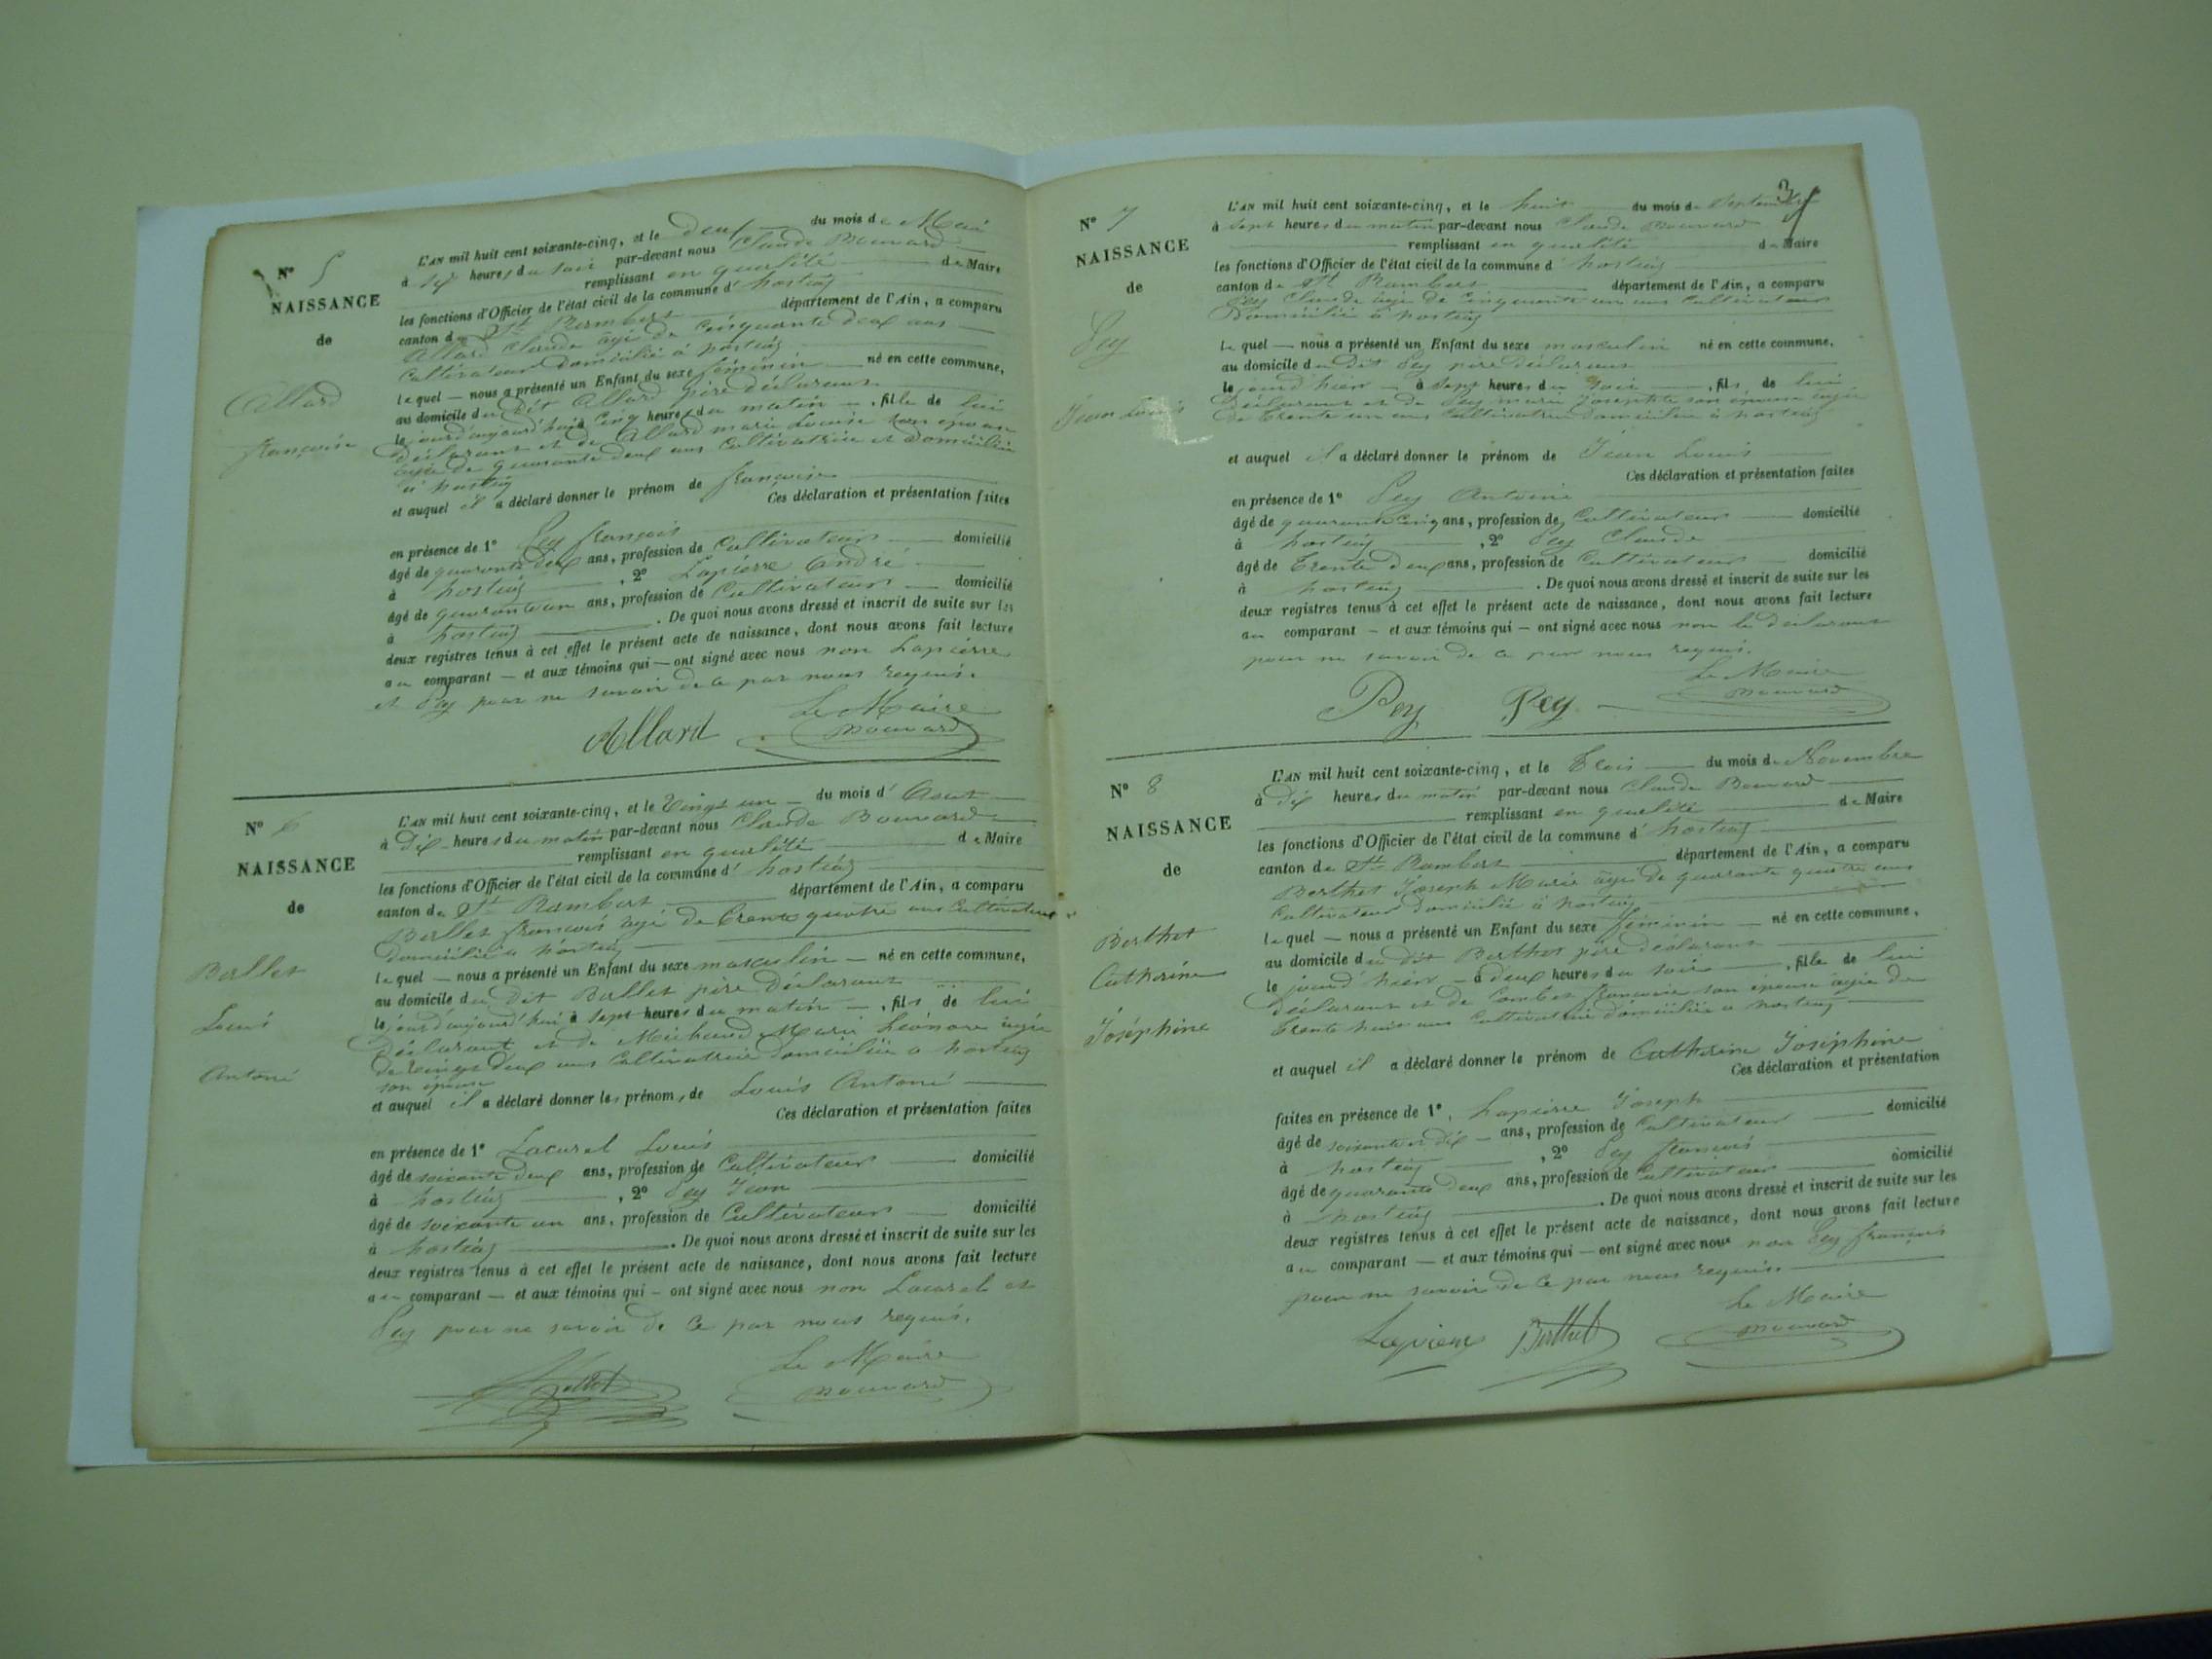 N° 5
NAISSANCE
de
Allard
françoise
L'AN mil huit cent soixante-cinq, et le deux du mois de Mai
à six heures du soir par-devant nous Claude Bouvard
remplissant en qualité de Maire
les fonctions d'Officier de l'état civil de la commune d' hostiaz
canton de St Rambert département de l'Ain, a comparu
Allard Claude âgé de cinquante deux ans
Cultivateur domicilié à hostiaz
lequel — nous a présenté un Enfant du sexe féminin né en cette commune,
au domicile du dit Allard père déclarant
le jourd'aujourd'hui à cinq heures du matin, fille de lui
déclarant et de Allard marie Louise son épouse
âgée de quarante deux ans Cultivatrice et domiciliée
à hostiaz
et auquel il a déclaré donner le prénom de françoise
Ces déclaration et présentation faites
en présence de 1° Pey françois
âgé de quarante deux ans, profession de Cultivateur domicilié
à hostiaz, 2° Lapierre André
âgé de quarante un ans, profession de Cultivateur domicilié
à hostiaz. De quoi nous avons dressé et inscrit de suite sur les
deux registres tenus à cet effet le présent acte de naissance, dont nous avons fait lecture
au comparant — et aux témoins qui — ont signé avec nous non Lapierre
et Pey pour ne savoir de ce par nous requis.
Allard Le Maire
Bouvard
N° 6
NAISSANCE
de
Ballet
Louis
Antoine
L'AN mil huit cent soixante-cinq, et le Vingt un du mois d' Aout
à Dix heures du matin par-devant nous Claude Bouvard
remplissant en qualité de Maire
les fonctions d'Officier de l'état civil de la commune d' hostiaz
canton de St Rambert département de l'Ain, a comparu
Ballet françois âgé de trente quatre ans Cultivateur
domicilié à hostiaz
lequel — nous a présenté un Enfant du sexe masculin — né en cette commune,
au domicile du dit Ballet père déclarant
le jourd'aujourd'hui à sept heures du matin —, fils de lui
déclarant et de Michaud Marie Léonore âgée
de vingt deux ans Cultivatrice domiciliée à hostiaz
son épouse
et auquel il a déclaré donner les prénoms de Louis Antoine
Ces déclaration et présentation faites
en présence de 1° Lacurel Louis
âgé de soixante deux ans, profession de Cultivateur domicilié
à hostiaz, 2° Pey Jean
âgé de soixante un ans, profession de Cultivateur domicilié
à hostiaz. De quoi nous avons dressé et inscrit de suite sur les
deux registres tenus à cet effet le présent acte de naissance, dont nous avons fait lecture
au comparant — et aux témoins qui — ont signé avec nous non Lacurel et
Pey pour ne savoir de ce par nous requis.
Ballet Le Maire
Bouvard
3
N° 7
NAISSANCE
de
Pey
Jean Louis
L'AN mil huit cent soixante-cinq, et le huit du mois de Septembre
à sept heures du matin par-devant nous Claude Bouvard
remplissant en qualité de Maire
les fonctions d'Officier de l'état civil de la commune d' hostiaz
canton de St Rambert département de l'Ain, a comparu
Pey Claude âgé de Cinquante un ans Cultivateur
Domicilié à hostiaz
lequel — nous a présenté un Enfant du sexe masculin né en cette commune.
au domicile du Dit Pey père déclarant
le jourd'hier — à sept heures du soir, fils de lui
déclarant et de Pey marie Josephte son épouse âgée
de trente un ans Cultivatrice domiciliée à hostiaz
et auquel il a déclaré donner le prénom de Jean Louis
Ces déclaration et présentation faites
en présence de 1° Pey Antoine
âgé de quarante cinq ans, profession de Cultivateur domicilié
à hostiaz, 2° Pey Claude
âgé de trente deux ans, profession de Cultivateur domicilié
à hostiaz. De quoi nous avons dressé et inscrit de suite sur les
deux registres tenus à cet effet le présent acte de naissance, dont nous avons fait lecture
au comparant — et aux témoins qui — ont signé avec nous non le déclarant
pour ne savoir de ce par nous requis.
Pey Pey Le Maire
Bouvard
N° 8
NAISSANCE
de
Berthet
Catherine
Joséphine
L'AN mil huit cent soixante-cinq, et le trois du mois de Novembre
à dix heures du matin par-devant nous Claude Bouvard
remplissant en qualité de Maire
les fonctions d'Officier de l'état civil de la commune d' hostiaz
canton de St Rambert département de l'Ain, a comparu
Berthet Joseph Marie âgé de quarante quatre ans
Cultivateur domicilié à hostiaz
lequel — nous a présenté un Enfant du sexe féminin né en cette commune,
au domicile du dit Berthet père déclarant
le jourd'hier — à deux heures du soir, fille de lui
déclarant et de Combet françoise son épouse âgée de
trente huit ans Cultivatrice domiciliée à hostiaz
et auquel il a déclaré donner le prénom de Catherine Joséphine
Ces déclaration et présentation
faites en présence de 1°, Lapierre Joseph
âgé de soixante et dix — ans, profession de Cultivateur domicilié
à hostiaz, 2° Pey françois
âgé de quarante deux ans, profession de Cultivateur domicilié
à hostiaz. De quoi nous avons dressé et inscrit de suite sur les
deux registres tenus à cet effet le présent acte de naissance, dont nous avons fait lecture
au comparant — et aux témoins qui — ont signé avec nous non Pey françois
pour ne savoir de ce par nous requis.
Lapierre Berthet Le Maire
Bouvard